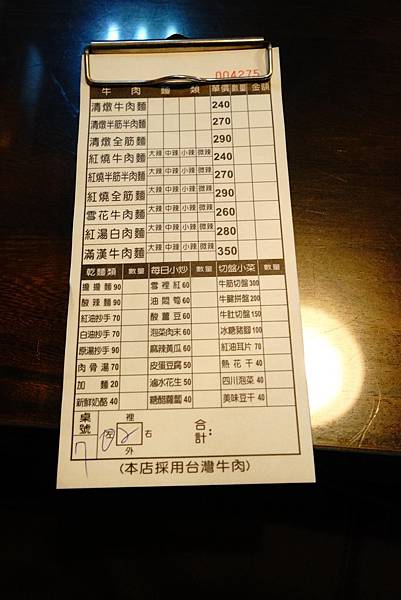 004275
牛肉麵類 單價 數量 金額
清燉牛肉麵 240
清燉半筋半肉麵 270
清燉全筋麵 290
紅燒牛肉麵 大辣 中辣 小辣 微辣 240
紅燒半筋半肉麵 大辣 中辣 小辣 微辣 270
紅燒全筋麵 大辣 中辣 小辣 微辣 290
雪花牛肉麵 大辣 中辣 小辣 微辣 260
紅湯白肉麵 大辣 中辣 小辣 微辣 280
滿漢牛肉麵 大辣 中辣 小辣 微辣 350
乾麵類 數量 每日小炒 數量 切盤小菜 數量
擔擔麵 90 雪裡紅 60 牛筋切盤 300
酸辣麵 90 油燜筍 60 牛腱拼盤 200
紅油抄手 70 酸薑豆 60 牛肚切盤 150
白油抄手 70 泡菜肉末 60 冰糖豬腳 100
原湯抄手 90 麻辣黃瓜 60 紅油耳片 70
肉骨湯 70 皮蛋豆腐 50 熱花干 40
加麵 20 滷水花生 50 四川泡菜 40
新鮮奶酪 40 糖醋蘿蔔 40 美味豆干 40
桌號 7 裡 左 2 右 外 合計:
(本店採用台灣牛肉)